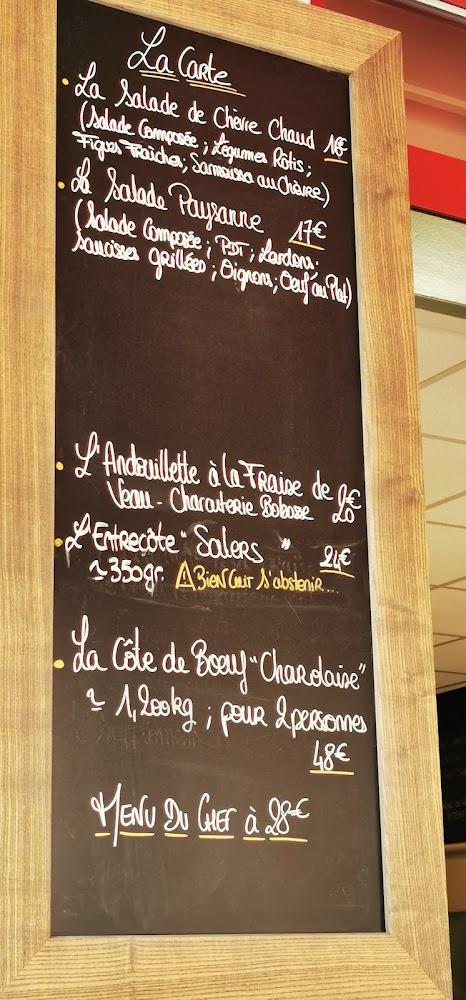 La Carte
La Salade de Chèvre Chaud 16€
(Salade Composée ; Légumes Rôtis ;
Figues Fraîches ; Samoussa au Chèvre)
La Salade Paysanne 17€
(Salade Composée ; PDT ; Lardons ;
Saucisses grillées ; Oignons ; Oeuf au Plat)
L'Andouillette à la Fraise de
Veau - Charcuterie Bobosse 20€
L'Entrecôte "Salers" 24€
~ 350gr. ⚠ Bien Cuit S'abstenir...
La Côte de Boeuf "Charolaise"
~ 1,200kg ; pour 2 personnes
48€
MENU DU CHEF à 28€